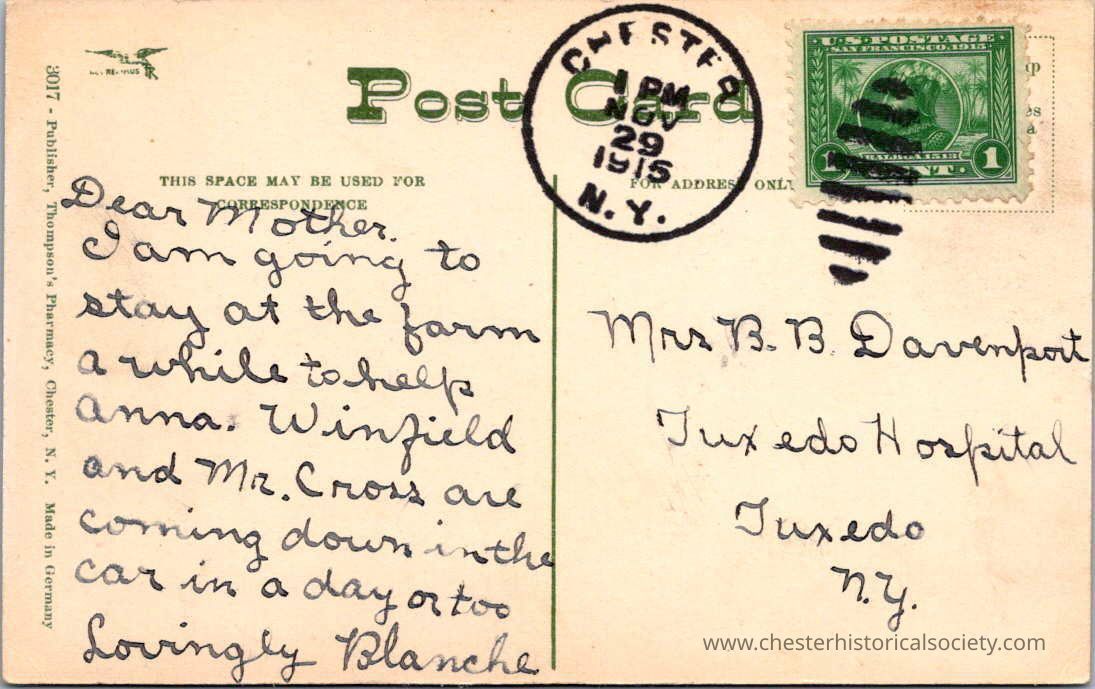 3017 - Publisher, Thompson's Pharmacy, Chester, N. Y. Made in Germany
Post Card
CHESTER
1 PM
NOV
29
1915
N.Y.
U.S. POSTAGE
SAN FRANCISCO, 1915
1 CENT. 1
THIS SPACE MAY BE USED FOR
CORRESPONDENCE
FOR ADDRESS ONLY
Dear Mother.
I am going to
stay at the farm
a while to help
Anna. Winfield
and Mr. Cross are
coming down in the
car in a day or too
Lovingly Blanche
Mrs B. B. Davenport
Tuxedo Hospital
Tuxedo
N.Y.
www.chesterhistoricalsociety.com